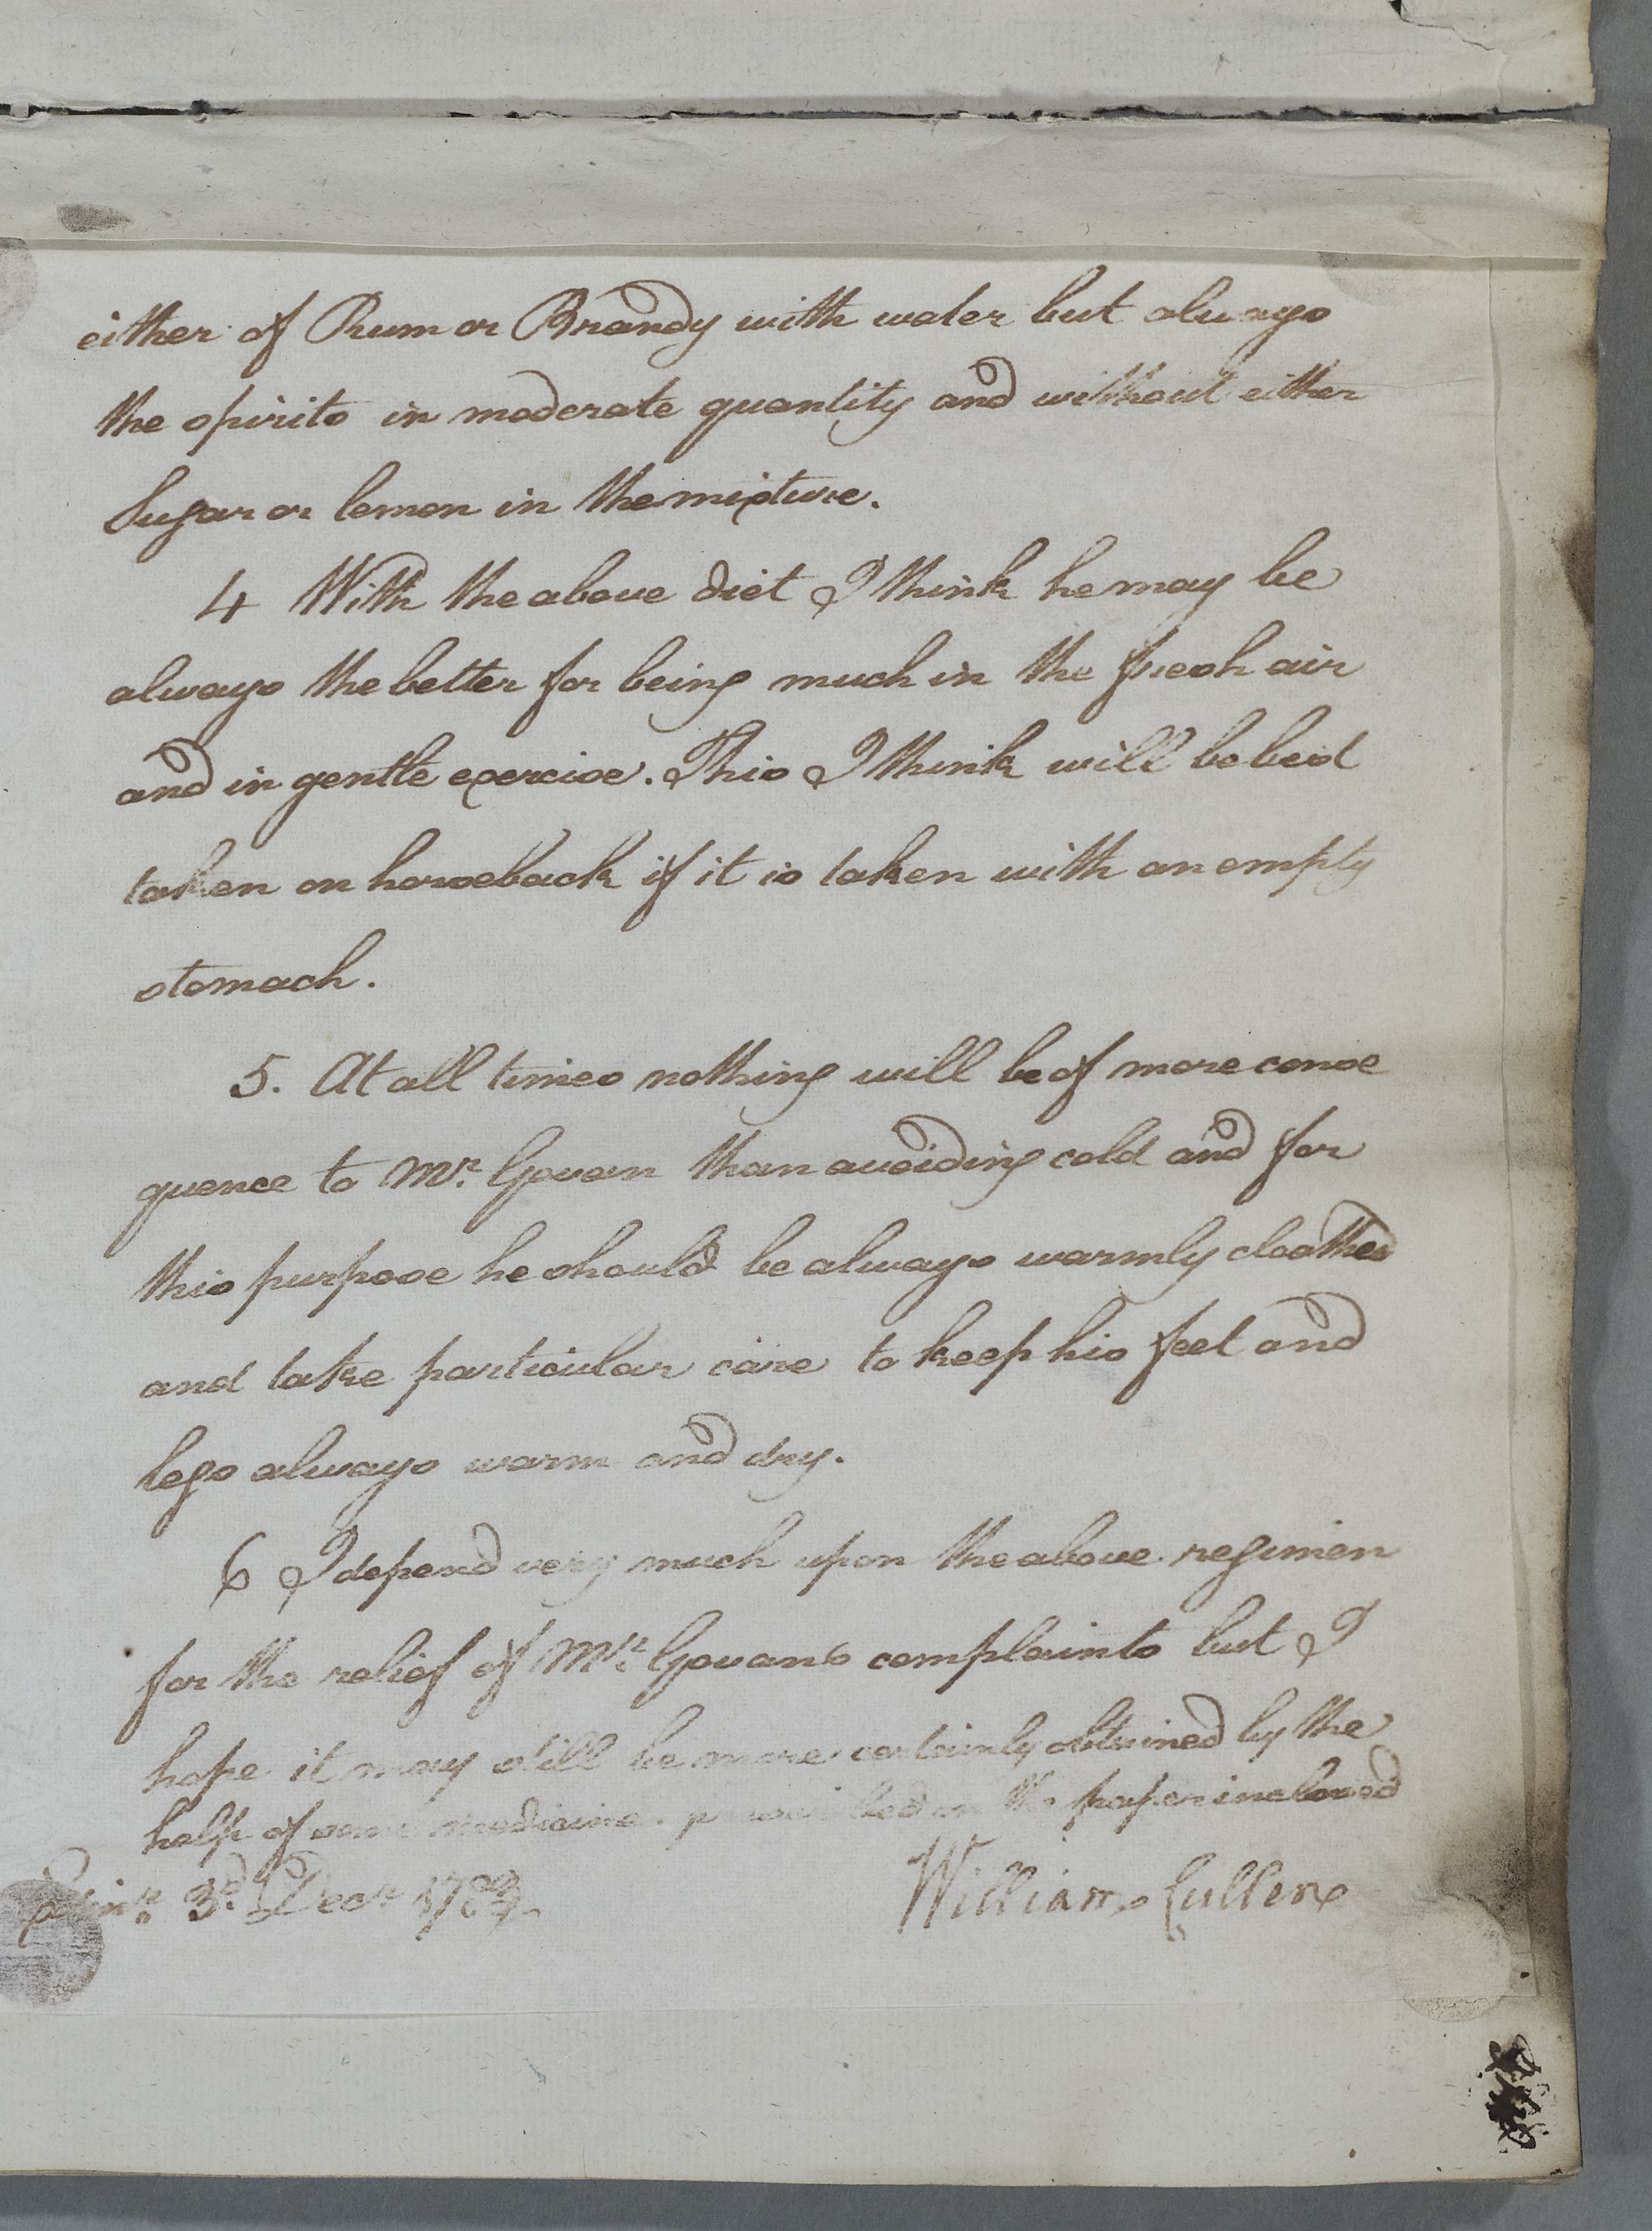 either of Rum or Brandy with water but always
the spirits in moderate quantity and without either
Sugar or lemon in the mixture.
4 With the above diet I think he may be
always the better for being much in the fresh air
and in gentle exercise. This I think will be best
taken on horseback if it is taken with an empty
stomach.
5. At all times nothing will be of more conse
quence to Mr. Govan than avoiding cold and for
this purpose he should be always warmly cloathed
and take particular care to keep his feet and
legs always warm and dry.
6 I depend very much upon the above regimen
for the relief of Mr. Govans complaints but I
hope it may still be more certainly obtained by the
help of some medicines prescribed on the paper inclosed
Edinr. 3d. Decr 1783
William Cullen